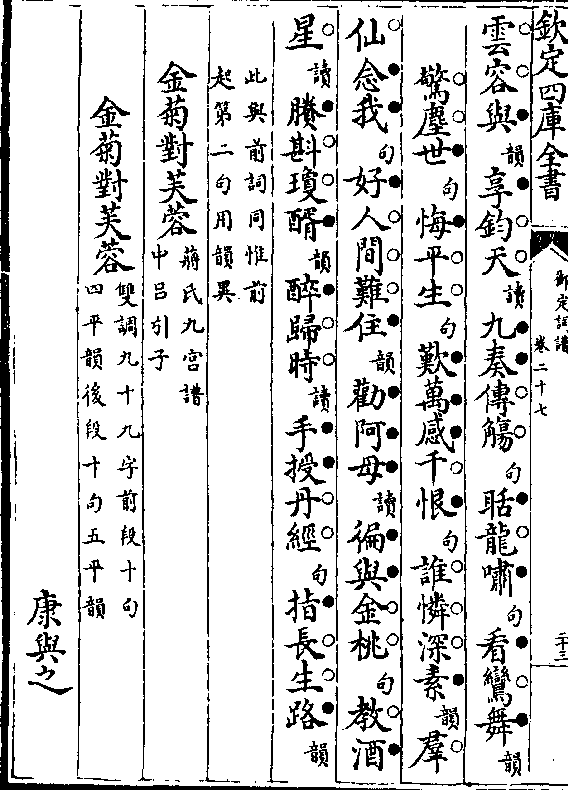 欽定四庫全書
御定詞譜
卷二十七
二十三
雲容與韻享鈞天讀九奏傳觴句聒龍嘯句看鸞舞韻
驚塵世句悔平生句歎萬感千恨句誰憐深素韻羣
仙念我句好人間難住韻勸阿母讀徧與金桃句教酒
星讀賸斟瓊醑韻醉歸時讀手授丹經句指長生路韻
此與前詞同惟前
起第二句用韻異
金菊對芙蓉蔣氏九宮譜
中呂引子
金菊對芙蓉雙調九十九字前段十句
四平韻後段十句五平韻
康與之